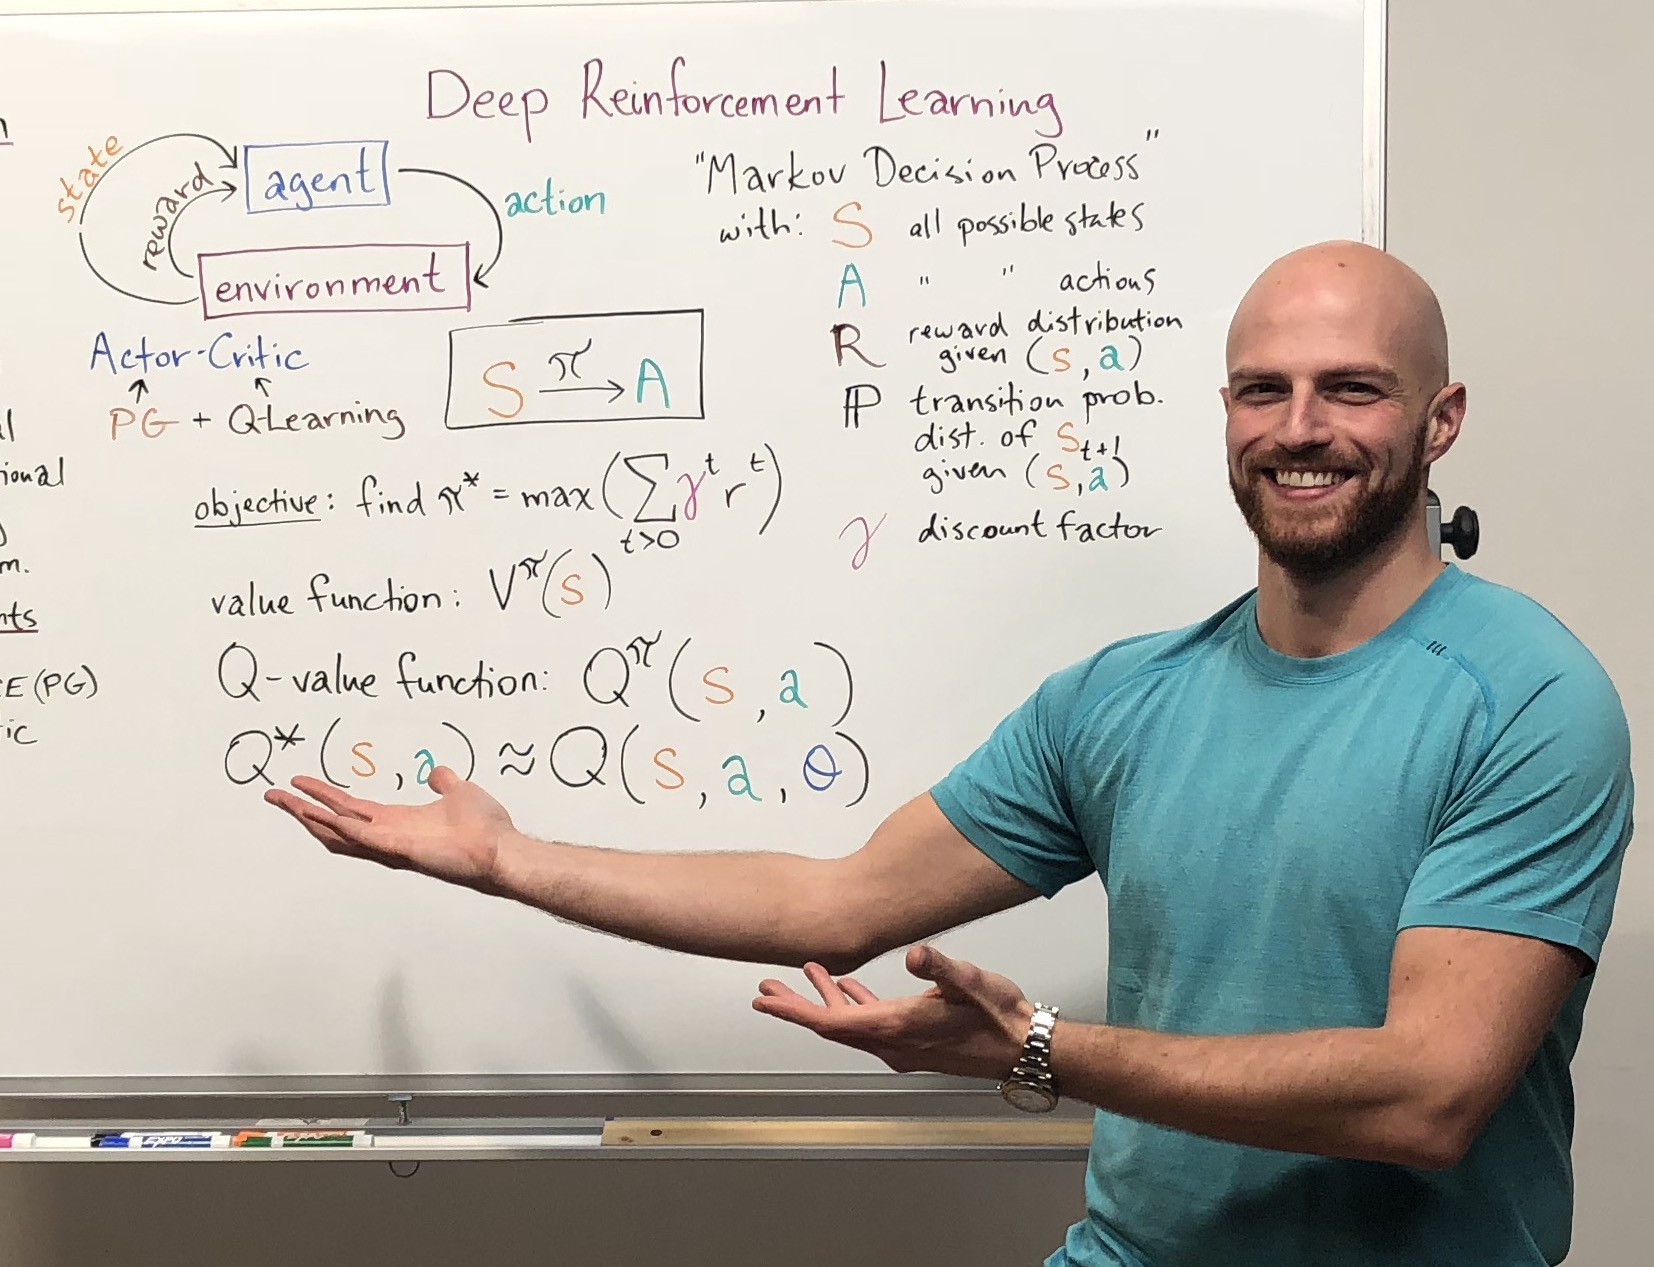 Deep Reinforcement Learning
state
reward
agent
action
environment
Actor-Critic
PG + Q-Learning
S π→ A
"Markov Decision Process"
with: S all possible states
A " " actions
R reward distribution
given (s, a)
ℙ transition prob.
dist. of S_{t+1}
given (s,a)
γ discount factor
objective: find π* = max(∑_{t>0} γ^t r^t)
value function: V^π(s)
Q-value function: Q^π(s, a)
Q*(s, a) ≈ Q(s, a, θ)
ional
m.
nts
E (PG)
ic
EXPO